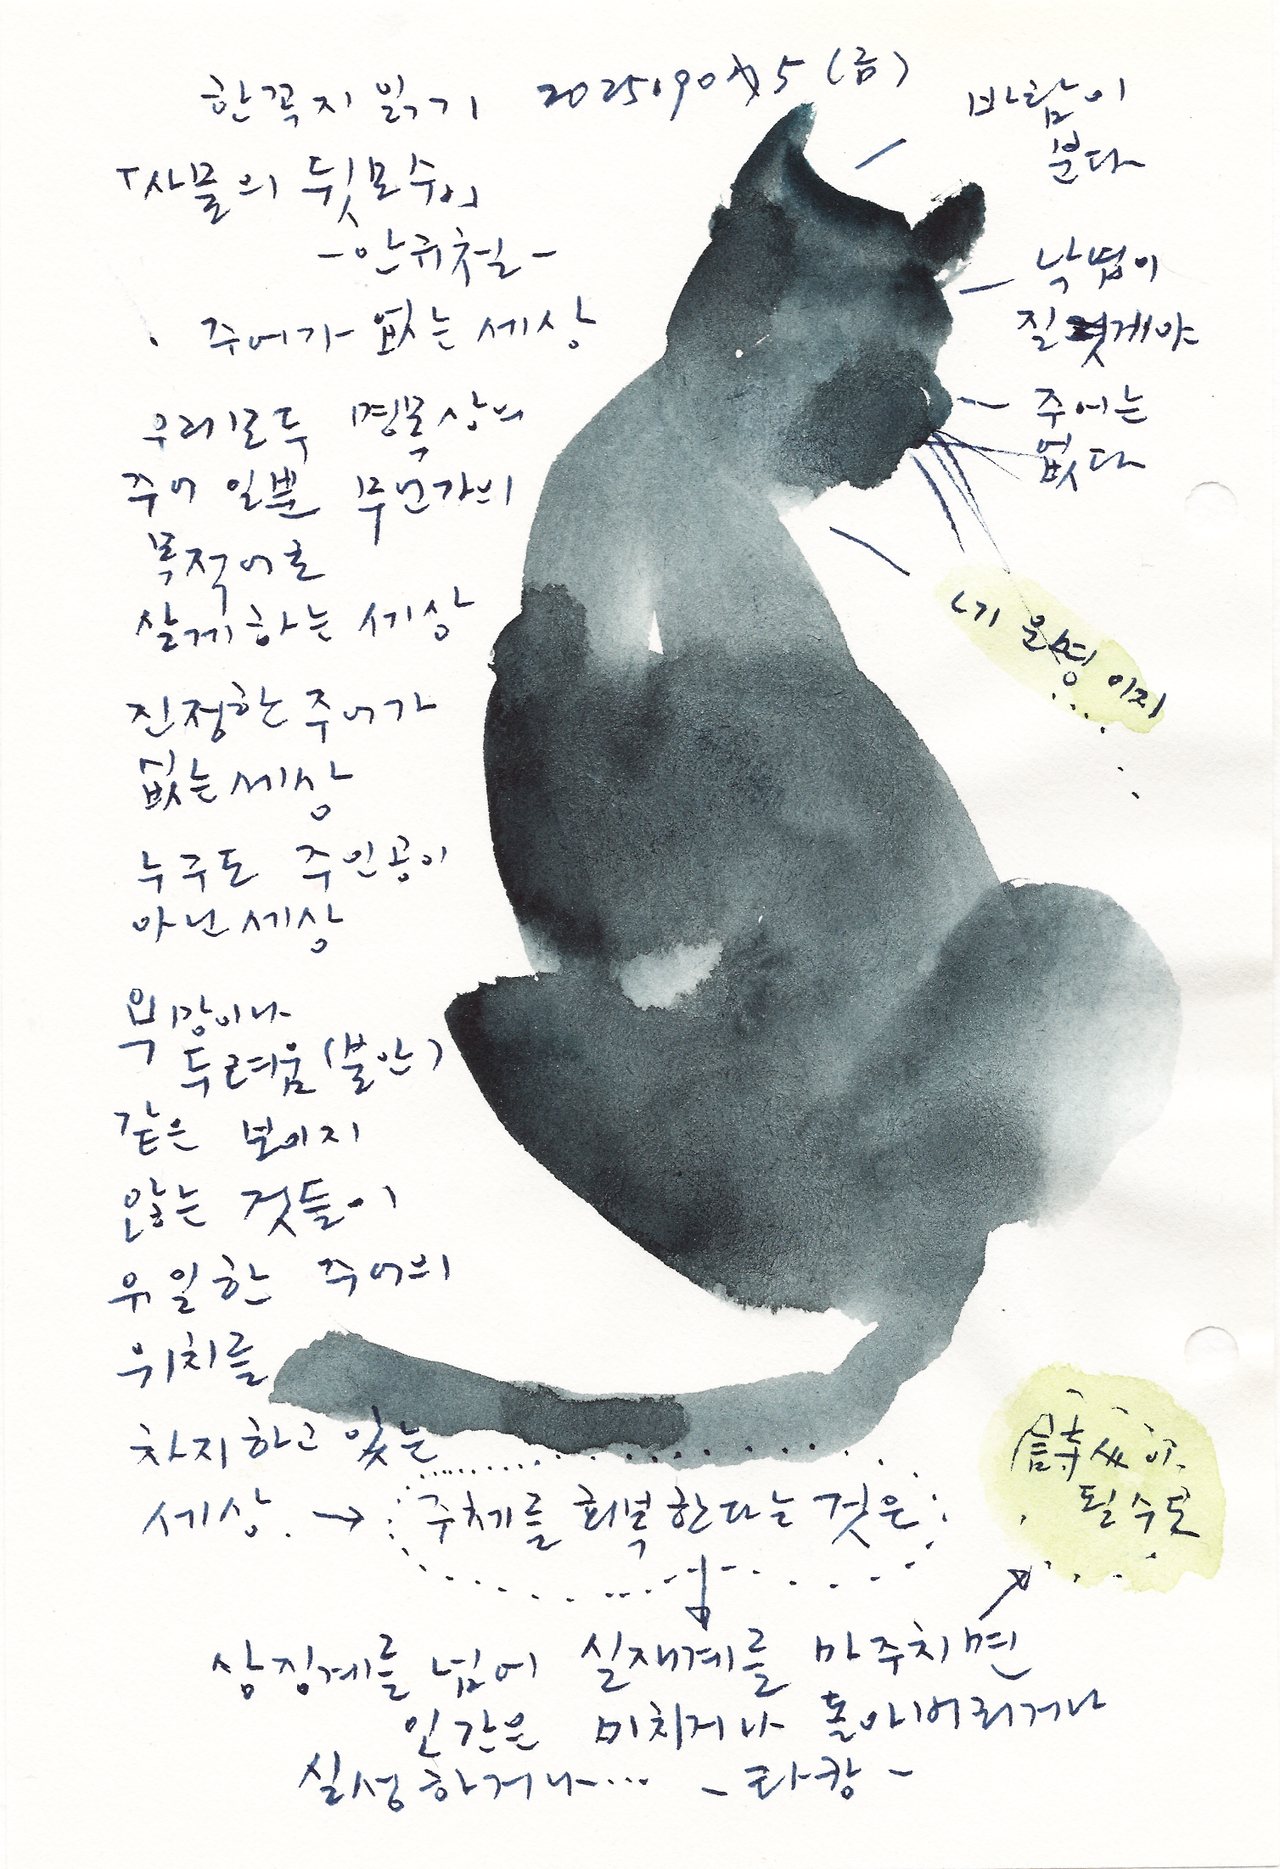 한꼭지 읽기 2025.9.5 (금)
「사물의 뒷모습」
-안규철-
주어가 없는 세상
우리 모두 명목상의
주어일뿐 무언가의
목적어로
살게하는 세상
진정한 주어가
없는 세상
누구도 주인공이
아닌 세상
욕망이나
두려움(불안)
같은 보이지
않는 것들이
유일한 주어의
위치를
차지하고 있는
세상. → 주체를 회복한다는 것은
상징계를 넘어 실재계를 마주치면
인간은 미치거나 돌아버리거나
실성하거나... - 라캉 -
바람이
분다
낙엽이
질 게야
주어는
없다
내 운명이지
詩人이
될 수도